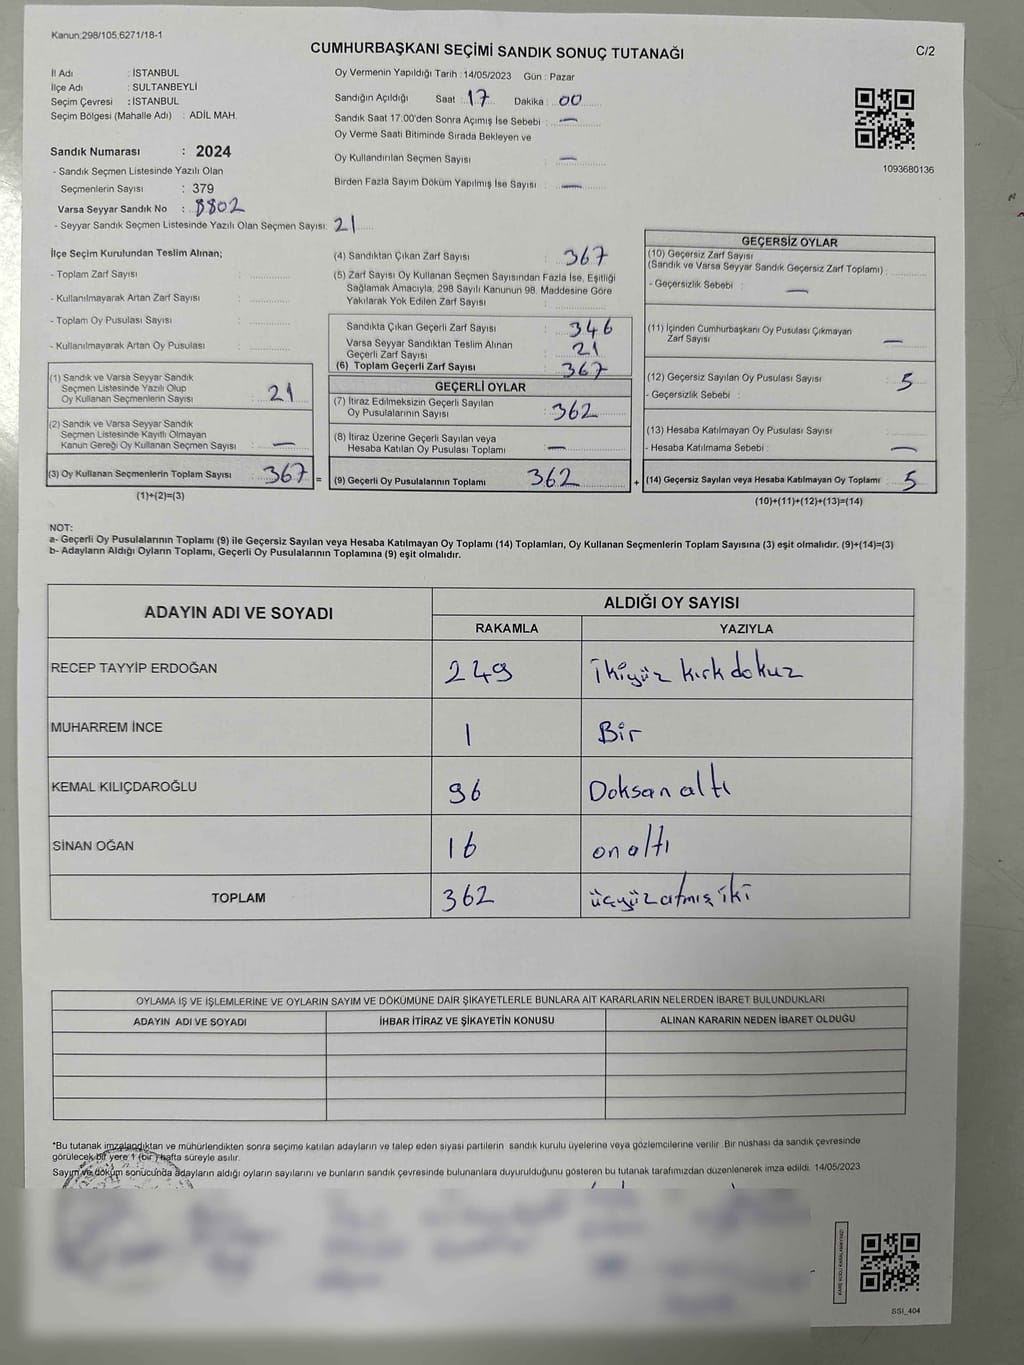 Kanun:298/105,6271/18-1
CUMHURBAŞKANI SEÇİMİ SANDIK SONUÇ TUTANAĞI
C/2
İl Adı : İSTANBUL
İlçe Adı : SULTANBEYLİ
Seçim Çevresi : İSTANBUL
Seçim Bölgesi (Mahalle Adı) : ADİL MAH.
Oy Vermenin Yapıldığı Tarih : 14/05/2023 Gün : Pazar
Sandığın Açıldığı Saat 17 Dakika : 00
Sandık Saat 17:00'den Sonra Açımış İse Sebebi : —
Oy Verme Saati Bitiminde Sırada Bekleyen ve
Oy Kullandırılan Seçmen Sayısı —
Birden Fazla Sayım Döküm Yapılmış İse Sayısı : —
1093680136
Sandık Numarası : 2024
- Sandık Seçmen Listesinde Yazılı Olan
Seçmenlerin Sayısı : 379
Varsa Seyyar Sandık No : 8802
- Seyyar Sandık Seçmen Listesinde Yazılı Olan Seçmen Sayısı: 21
İlçe Seçim Kurulundan Teslim Alınan;
- Toplam Zarf Sayısı :
- Kullanılmayarak Artan Zarf Sayısı :
- Toplam Oy Pusulası Sayısı :
- Kullanılmayarak Artan Oy Pusulası :
(1) Sandık ve Varsa Seyyar Sandık
Seçmen Listesinde Yazılı Olup
Oy Kullanan Seçmenlerin Sayısı : 21
(2) Sandık ve Varsa Seyyar Sandık
Seçmen Listesinde Kayıtlı Olmayan
Kanun Gereği Oy Kullanan Seçmen Sayısı : —
(3) Oy Kullanan Seçmenlerin Toplam Sayısı : 367
(1)+(2)=(3)
(4) Sandıktan Çıkan Zarf Sayısı : 367
(5) Zarf Sayısı Oy Kullanan Seçmen Sayısından Fazla İse, Eşitliği
Sağlamak Amacıyla, 298 Sayılı Kanunun 98. Maddesine Göre
Yakılarak Yok Edilen Zarf Sayısı :
Sandıkta Çıkan Geçerli Zarf Sayısı : 346
Varsa Seyyar Sandıktan Teslim Alınan
Geçerli Zarf Sayısı : 21
(6) Toplam Geçerli Zarf Sayısı : 367
GEÇERLİ OYLAR
(7) İtiraz Edilmeksizin Geçerli Sayılan
Oy Pusulalarının Sayısı : 362
(8) İtiraz Üzerine Geçerli Sayılan veya
Hesaba Katılan Oy Pusulası Toplamı : —
= (9) Geçerli Oy Pusulalarının Toplamı 362
GEÇERSİZ OYLAR
(10) Geçersiz Zarf Sayısı
(Sandık ve Varsa Seyyar Sandık Geçersiz Zarf Toplamı) :
- Geçersizlik Sebebi : —
(11) İçinden Cumhurbaşkanı Oy Pusulası Çıkmayan
Zarf Sayısı —
(12) Geçersiz Sayılan Oy Pusulası Sayısı : 5
- Geçersizlik Sebebi :
(13) Hesaba Katılmayan Oy Pusulası Sayısı
- Hesaba Katılmama Sebebi : —
+ (14) Geçersiz Sayılan veya Hesaba Katılmayan Oy Toplamı 5
(10)+(11)+(12)+(13)=(14)
NOT:
a- Geçerli Oy Pusulalarının Toplamı (9) ile Geçersiz Sayılan veya Hesaba Katılmayan Oy Toplamı (14) Toplamları, Oy Kullanan Seçmenlerin Toplam Sayısına (3) eşit olmalıdır. (9)+(14)=(3)
b- Adayların Aldığı Oyların Toplamı, Geçerli Oy Pusulalarının Toplamına (9) eşit olmalıdır.
ADAYIN ADI VE SOYADI ALDIĞI OY SAYISI
RAKAMLA YAZIYLA
RECEP TAYYİP ERDOĞAN 249 ikiyüz kırk dokuz
MUHARREM İNCE 1 Bir
KEMAL KILIÇDAROĞLU 96 Doksan altı
SİNAN OĞAN 16 on altı
TOPLAM 362 üçyüz atmış iki
OYLAMA İŞ VE İŞLEMLERİNE VE OYLARIN SAYIM VE DÖKÜMÜNE DAİR ŞİKAYETLERLE BUNLARA AİT KARARLARIN NELERDEN İBARET BULUNDUKLARI
ADAYIN ADI VE SOYADI İHBAR İTİRAZ VE ŞİKAYETİN KONUSU ALINAN KARARIN NEDEN İBARET OLDUĞU
*Bu tutanak imzalandıktan ve mühürlendikten sonra seçime katılan adayların ve talep eden siyasi partilerin sandık kurulu üyelerine veya gözlemcilerine verilir. Bir nüshası da sandık çevresinde
görülecek bir yere 1 (bir) hafta süreyle asılır.
Sayım ve döküm sonucunda adayların aldığı oyların sayılarını ve bunların sandık çevresinde bulunanlara duyurulduğunu gösteren bu tutanak tarafımızdan düzenlenerek imza edildi. 14/05/2023
SSI_404